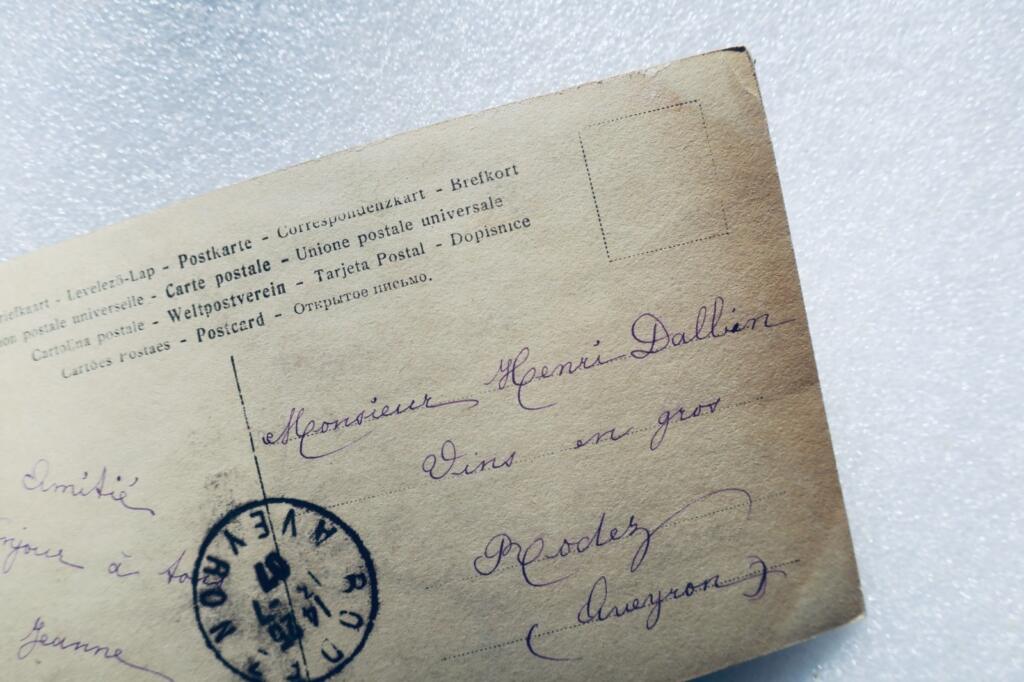 - Levelező-Lap - Postkarte - Correspondenzkart - Brefkort
postale universelle - Carte postale - Unione postale universale
Cartolina postale - Weltpostverein - Tarjeta Postal - Dopisnice
Cartões Postaes - Postcard - Открытое письмо.
Monsieur Henri Dallien
Vins en gros
Rodez
(Aveyron)
Amitié
à
Jeanne
RODEZ
AVEYRON
14
26 -7
07